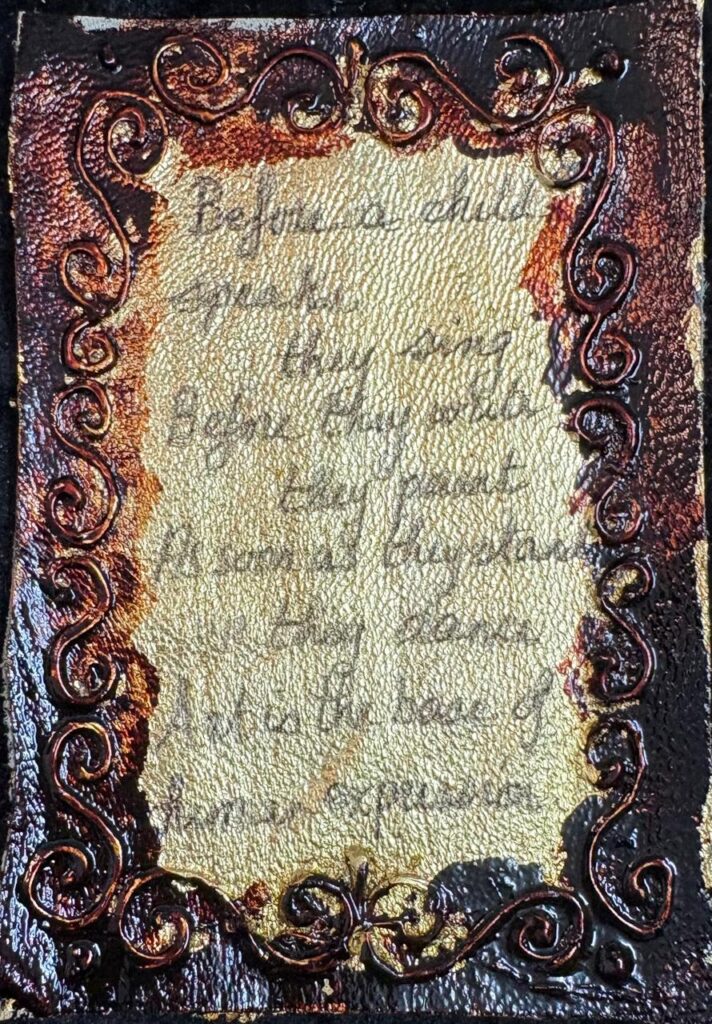 Before a child
speaks
they sing
Before they write
they paint
As soon as they stand
they dance
Art is the base of
human expression